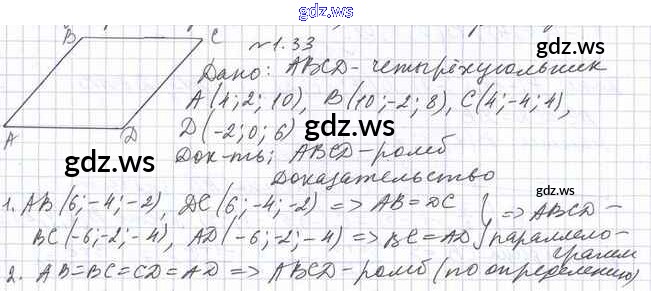 gdz.ws
B C
№1.33
Дано: ABCD - четырёхугольник
A(4; 2; 10), B(10; -2; 8), C(4; -4; 4),
D(-2; 0; 6)
gdz.ws
gdz.ws
A D
Док-ть: ABCD - ромб
gdz.ws
Доказательство
1. AB(6; -4; -2), DC(6; -4; -2) => AB = DC
BC(-6; -2; -4), AD(-6; -2; -4) => BC = AD
=> ABCD -
параллело-
грамм
gdz.ws
gdz.ws
2. AB = BC = CD = AD => ABCD - ромб (по определению)